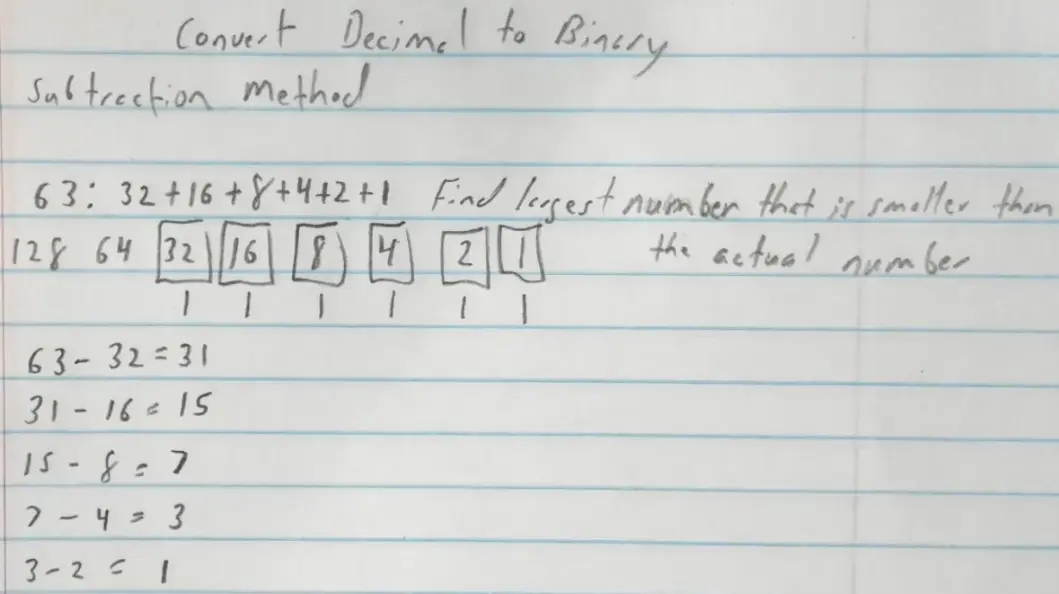 Convert Decimal to Binary
Subtraction method
63: 32+16+8+4+2+1 Find largest number that is smaller than
the actual number
128 64 32 16 8 4 2 1
1 1 1 1 1 1
63 - 32 = 31
31 - 16 = 15
15 - 8 = 7
7 - 4 = 3
3 - 2 = 1